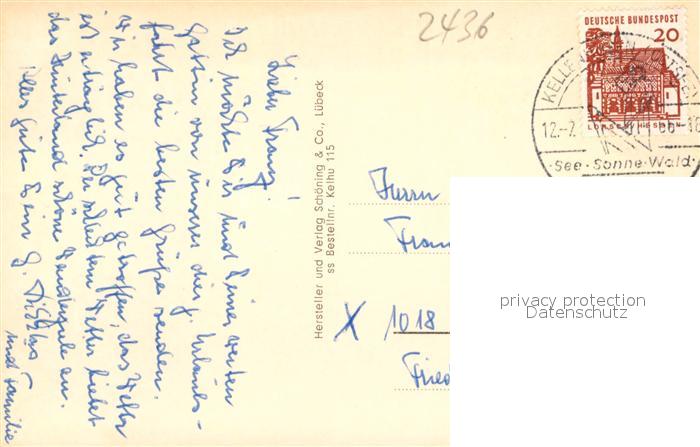 2436
DEUTSCHE BUNDESPOST
20
LORSCH/HESSEN
12.-7.
66-18
·See·Sonne·Wald·
Lieber Franz!
Ich möchte Dir und Deiner werten
Gattin von unserer diesj. Urlaubs-
fahrt die besten Grüße senden.
Wir haben es gut getroffen, das Wetter
ist erträglich. Bei schlechtem Wetter bietet
das Hinterland schöne Wanderziele an.
Alles Gute Dein G.
und Familie
Hersteller und Verlag Schöning & Co., Lübeck
ss Bestellnr. Kelhu 115
Herrn
Fran
X 1018
Fried
privacy protection
Datenschutz